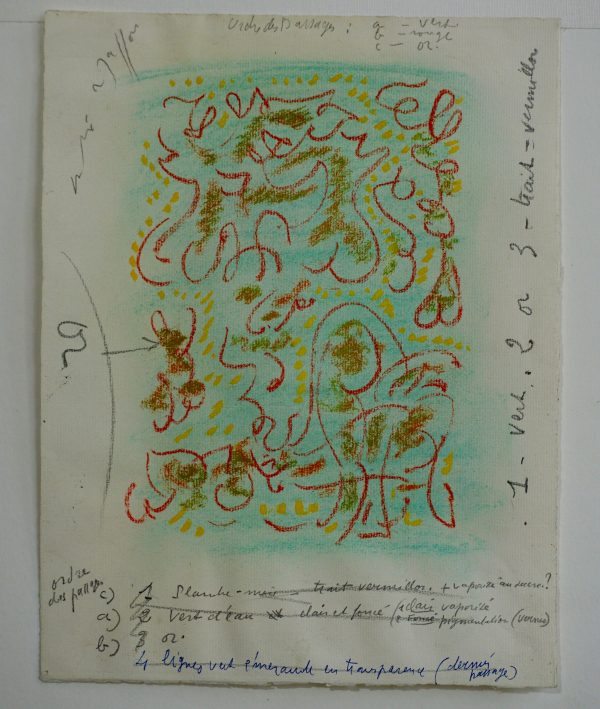 Ordre des Passages : a - vert
b - rouge
c - or.
1 - vert . 2 or 3 - trait = vermillon
ordre
des passages
c) 1 Planche - trait vermillon. + vaporisé au dessus ?
a) 2 vert d'eau clair et foncé clair vaporisé
foncé pigmentation (vernis)
b) 3 or.
4 lignes vert émeraude en transparence (dernier
passage)